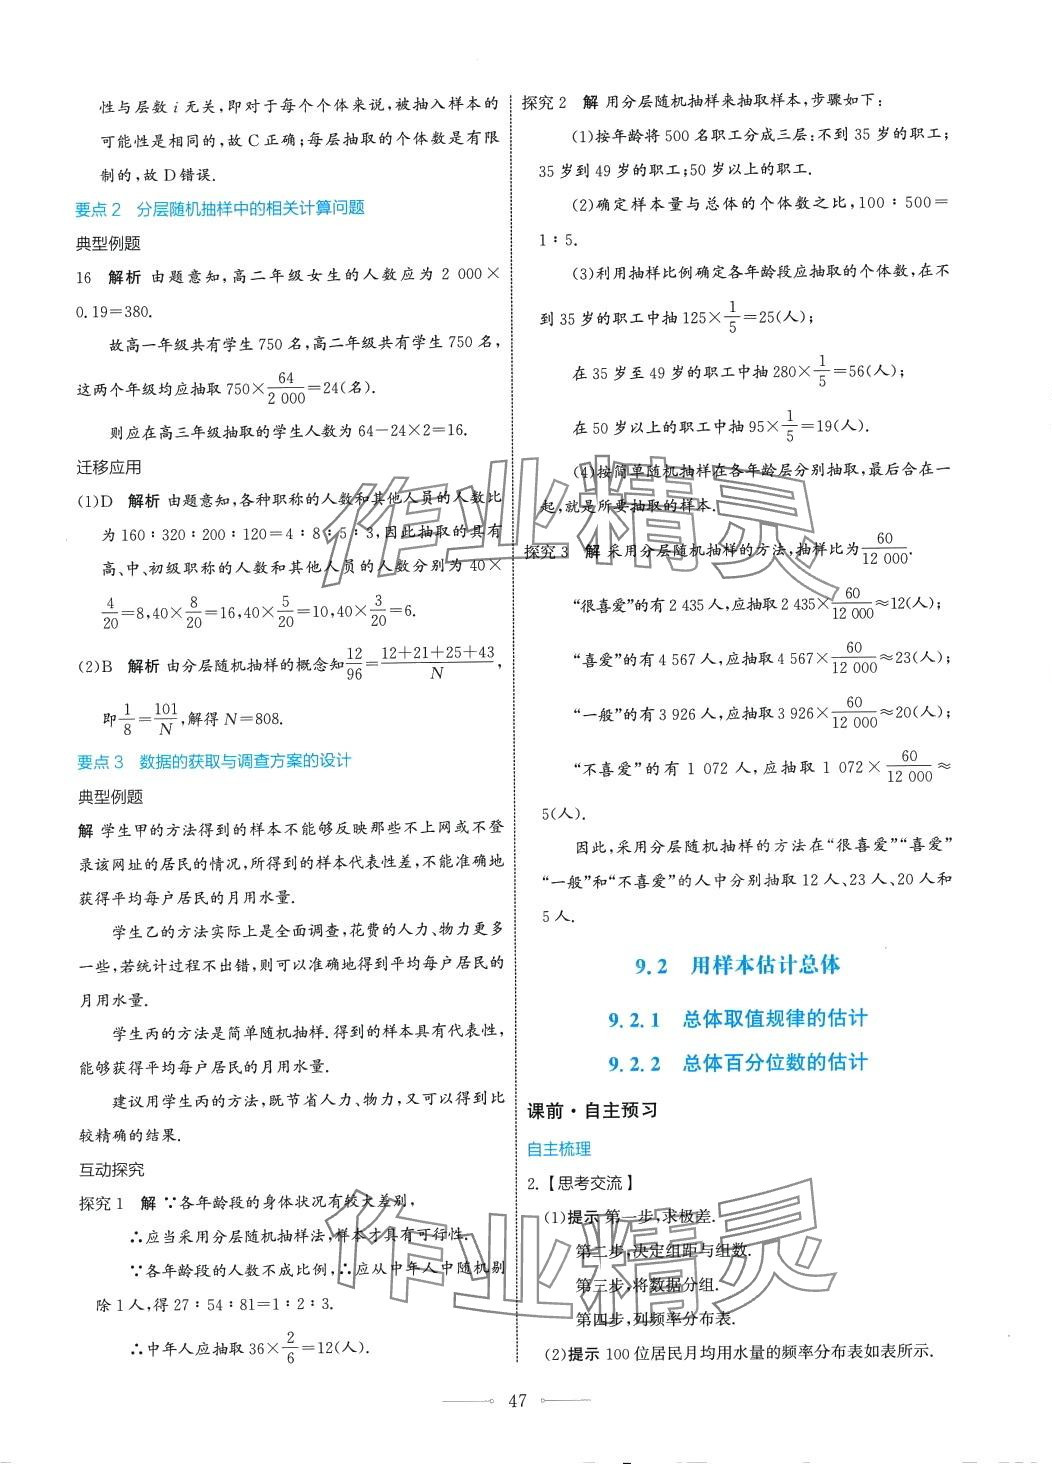 性与层数 i 无关,即对于每个个体来说,被抽入样本的
可能性是相同的,故 C 正确;每层抽取的个体数是有限
制的,故 D 错误.
要点 2 分层随机抽样中的相关计算问题
典型例题
16 解析 由题意知,高二年级女生的人数应为 2 000×
0.19=380.
故高一年级共有学生 750 名,高二年级共有学生 750 名,
这两个年级均应抽取 750×64/2 000=24(名).
则应在高三年级抽取的学生人数为 64-24×2=16.
迁移应用
(1)D 解析 由题意知,各种职称的人数和其他人员的人数比
为 160∶320∶200∶120=4∶8∶5∶3,因此抽取的具有
高、中、初级职称的人数和其他人员的人数分别为 40×
4/20=8,40×8/20=16,40×5/20=10,40×3/20=6.
(2)B 解析 由分层随机抽样的概念知12/96=(12+21+25+43)/N,
即1/8=101/N,解得 N=808.
要点 3 数据的获取与调查方案的设计
典型例题
解 学生甲的方法得到的样本不能够反映那些不上网或不登
录该网址的居民的情况,所得到的样本代表性差,不能准确地
获得平均每户居民的月用水量.
学生乙的方法实际上是全面调查,花费的人力、物力更多
一些,若统计过程不出错,则可以准确地得到平均每户居民的
月用水量.
学生丙的方法是简单随机抽样.得到的样本具有代表性,
能够获得平均每户居民的月用水量.
建议用学生丙的方法,既节省人力、物力,又可以得到比
较精确的结果.
互动探究
探究 1 解 ∵各年龄段的身体状况有较大差别,
∴应当采用分层随机抽样法,样本才具有可行性.
∵各年龄段的人数不成比例,∴应从中年人中随机剔
除 1 人,得 27∶54∶81=1∶2∶3.
∴中年人应抽取 36×2/6=12(人).
探究 2 解 用分层随机抽样来抽取样本,步骤如下:
(1)按年龄将 500 名职工分成三层:不到 35 岁的职工;
35 岁到 49 岁的职工;50 岁以上的职工.
(2)确定样本量与总体的个体数之比,100∶500=
1∶5.
(3)利用抽样比例确定各年龄段应抽取的个体数,在不
到 35 岁的职工中抽 125×1/5=25(人);
在 35 岁至 49 岁的职工中抽 280×1/5=56(人);
在 50 岁以上的职工中抽 95×1/5=19(人).
(4)按简单随机抽样在各年龄层分别抽取,最后合在一
起,就是所要抽取的样本.
探究 3 解 采用分层随机抽样的方法,抽样比为60/12 000.
“很喜爱”的有 2 435 人,应抽取 2 435×60/12 000≈12(人);
“喜爱”的有 4 567 人,应抽取 4 567×60/12 000≈23(人);
“一般”的有 3 926 人,应抽取 3 926×60/12 000≈20(人);
“不喜爱”的有 1 072 人,应抽取 1 072×60/12 000≈
5(人).
因此,采用分层随机抽样的方法在“很喜爱”“喜爱”
“一般”和“不喜爱”的人中分别抽取 12 人、23 人、20 人和
5 人.
9.2 用样本估计总体
9.2.1 总体取值规律的估计
9.2.2 总体百分位数的估计
课前·自主预习
自主梳理
2.【思考交流】
(1)提示 第一步,求极差.
第二步,决定组距与组数.
第三步,将数据分组.
第四步,列频率分布表.
(2)提示 100 位居民月均用水量的频率分布表如表所示.
47
作业精灵
作业精灵